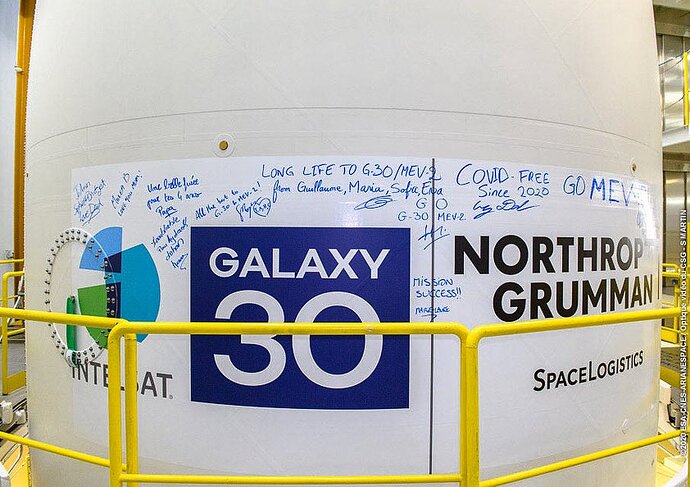 LONG LIFE TO G-30/MEV-2
from Guillaume, Maria, Sofia, Enya
COVID-FREE
Since 2020
GO MEV-
Une belle fusée
pour tes 4 ans
Papa
All the best to
G-30 & MEV-2!
GO
G-30 MEV-2.
MISSION
SUCCESS!!
GALAXY
30
INTELSAT.
NORTHROP
GRUMMAN
SPACELOGISTICS
©2020 ESA-CNES-ARIANESPACE / Optique vidéo du CSG - S MARTIN